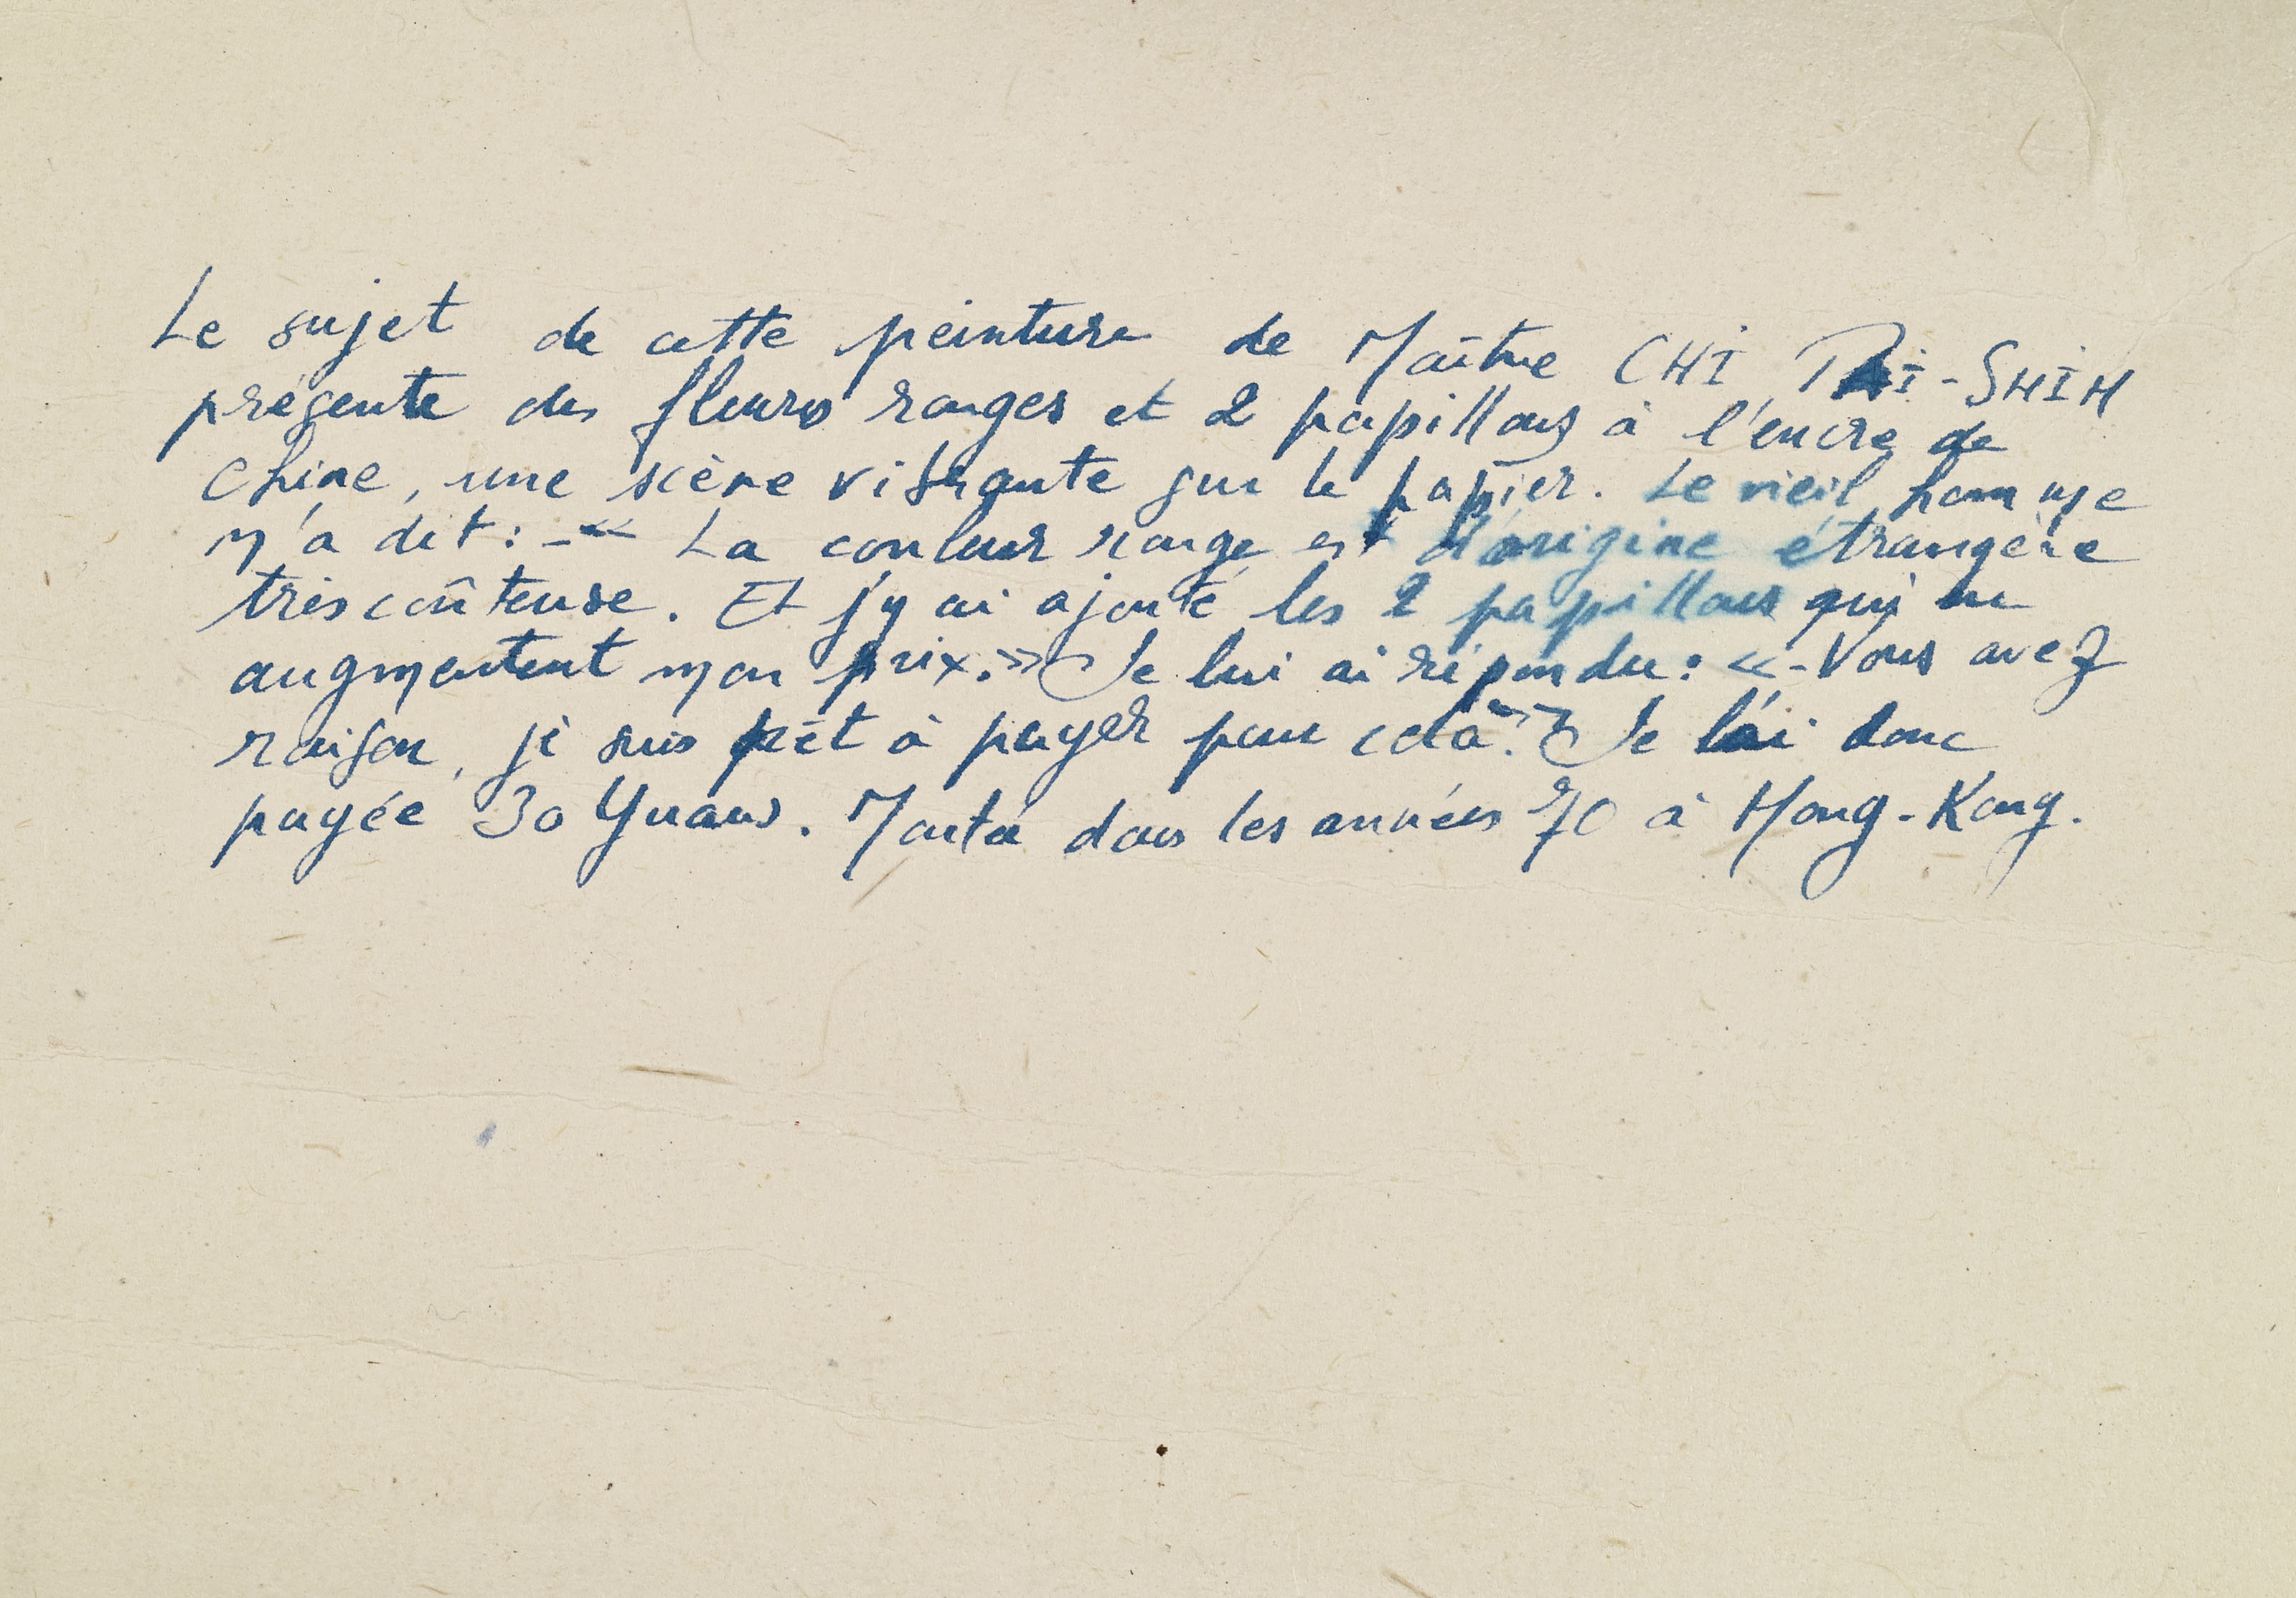 Le sujet de cette peinture de Maître CHI PAI-SHIH
présente des fleurs rouges et 2 papillons à l'encre de
Chine, une scène vibrante sur le papier. Le vieil homme
m'a dit : - « La couleur rouge est d'origine étrangère
très coûteuse. Et j'y ai ajouté les 2 papillons qui en
augmentent mon prix. » Je lui ai répondu : « - Vous avez
raison, je suis prêt à payer pour cela. » Je l'ai donc
payée 30 Yuans. Monté dans les années 70 à Hong-Kong.